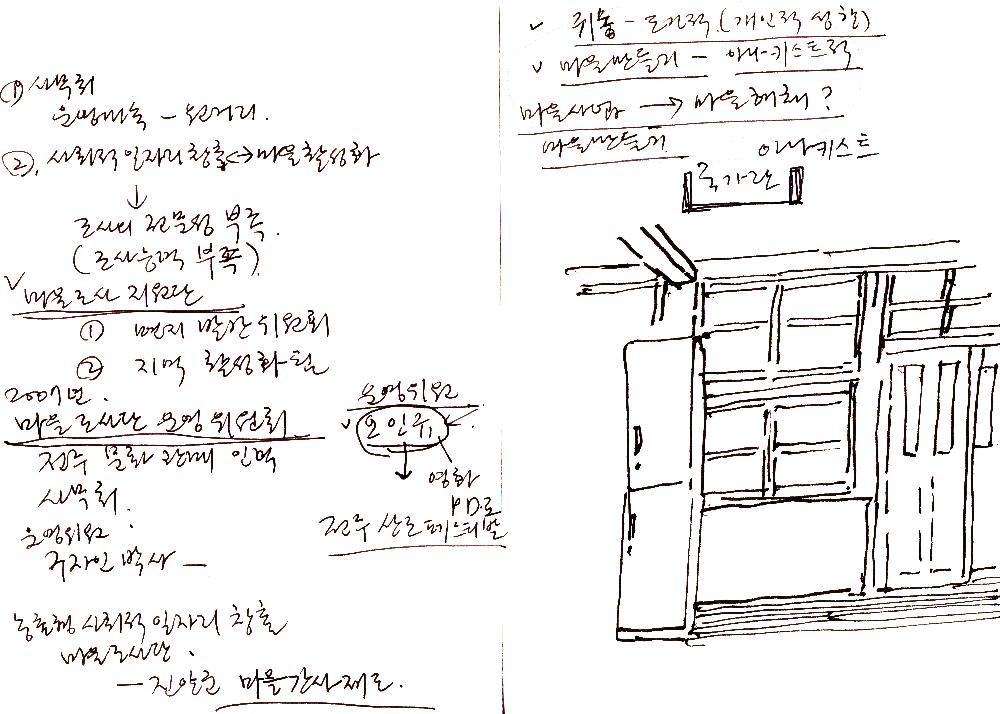 ① 사무국
운영미숙 -
②. 사회적 일자리 창출 <-> 마을활성화
↓
조사의 전문성 부족.
(조사능력 부족)
✓ 마을조사 지원단
① 먼저 발간위원회
② 지역 활성화 팀
2007년.
마을조사단 운영위원회
전주 문화 관매 인력
사무국.
운영위원
구자인 박사 —
농촌형 사회적 일자리 창출
마을조사단.
— 진안군 마을간사제도.
운영위원
✓ 오인규
↓
영화
PD로
전주 산조페스티벌
✓ 귀농 - 도가적. (개인적 성향)
✓ 마을만들기 - 아나키스트적
마을사업 → 마을해체?
마을만들기
아나키스트
국가관